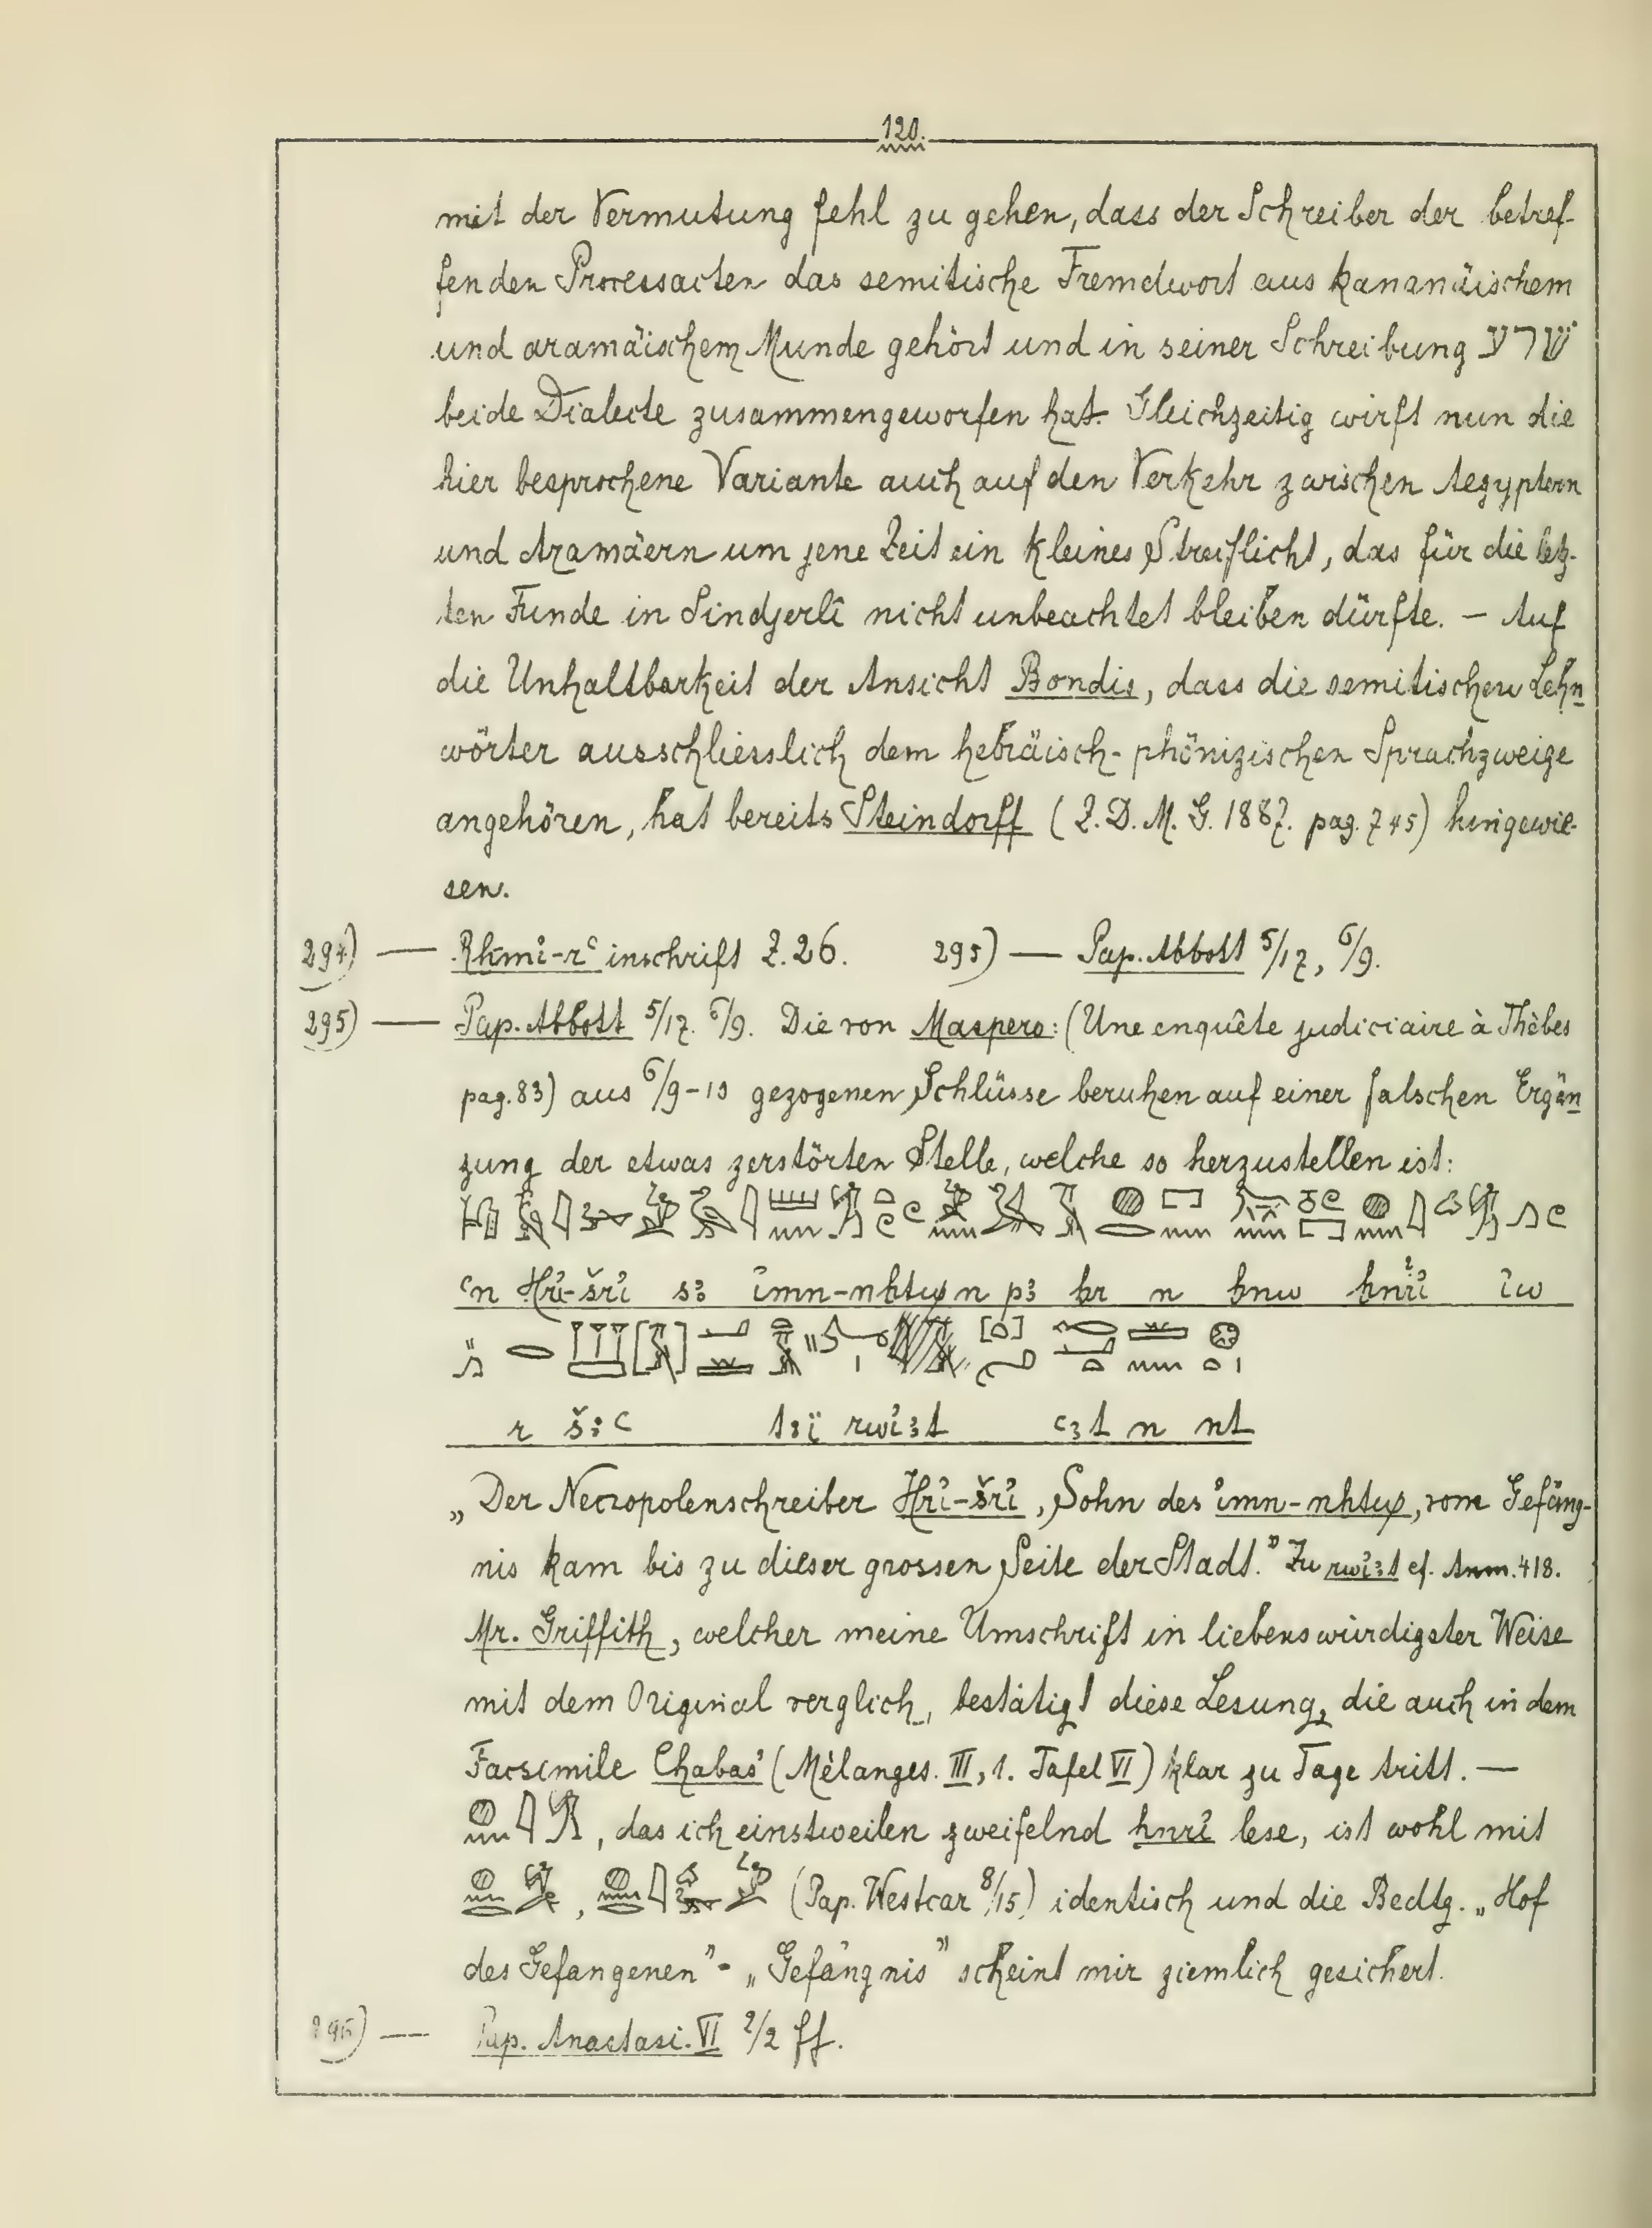 120.
mit der Vermutung fehl zu gehen, dass der Schreiber der betref-
fenden Processacten das semitische Fremdwort aus kananäischem
und aramäischem Munde gehört und in seiner Schreibung שׂרע
beide Dialecte zusammengeworfen hat. Gleichzeitig wirft nun die
hier besprochene Variante auch auf den Verkehr zwischen Aegyptern
und Aramäern um jene Zeit ein kleines Streiflicht, das für die letz-
ten Funde in Sindjerlî nicht unbeachtet bleiben dürfte. – Auf
die Unhaltbarkeit der Ansicht Bondis, dass die semitischen Lehn
wörter ausschliesslich dem hebräisch-phönizischen Sprachzweige
angehören, hat bereits Steindorff (Z. D. M. G. 1887. pag. 745) hingewie-
sen.
294) — Rḫmi-rꜥ inschrift Z. 26. 295) — Pap. Abbott 5/17, 6/9.
295) — Pap. Abbott 5/17. 6/9. Die von Maspero: (Une enquête judiciaire à Thèbes
pag. 83) aus 6/9-10 gezogenen Schlüsse beruhen auf einer falschen Ergän
zung der etwas zerstörten Stelle, welche so herzustellen ist:
ꜥn Ḥri-šri sꜣ imn-nḫtw n pꜣ ḫr n ḫnw ḫnri iw
r šꜣꜥ tꜣï rwiꜣt ꜥꜣt n nt
„Der Necropolenschreiber Ḥri-šri, Sohn des imn-nḫtw, vom Gefäng-
nis kam bis zu dieser grossen Seite der Stadt." Zu rwiꜣt cf. Anm. 418.
Mr. Griffith, welcher meine Umschrift in liebenswürdigster Weise
mit dem Original verglich, bestätigt diese Lesung, die auch in dem
Facsimile Chabas' (Mèlanges. III, 1. Tafel VI) klar zu Tage tritt. —
, das ich einstweilen zweifelnd ḫnri lese, ist wohl mit
, (Pap. Westcar 8/15) identisch und die Bedtg. „Hof
des Gefangenen" - „Gefängnis" scheint mir ziemlich gesichert.
296) — Pap. Anastasi. VI 2/2 ff.